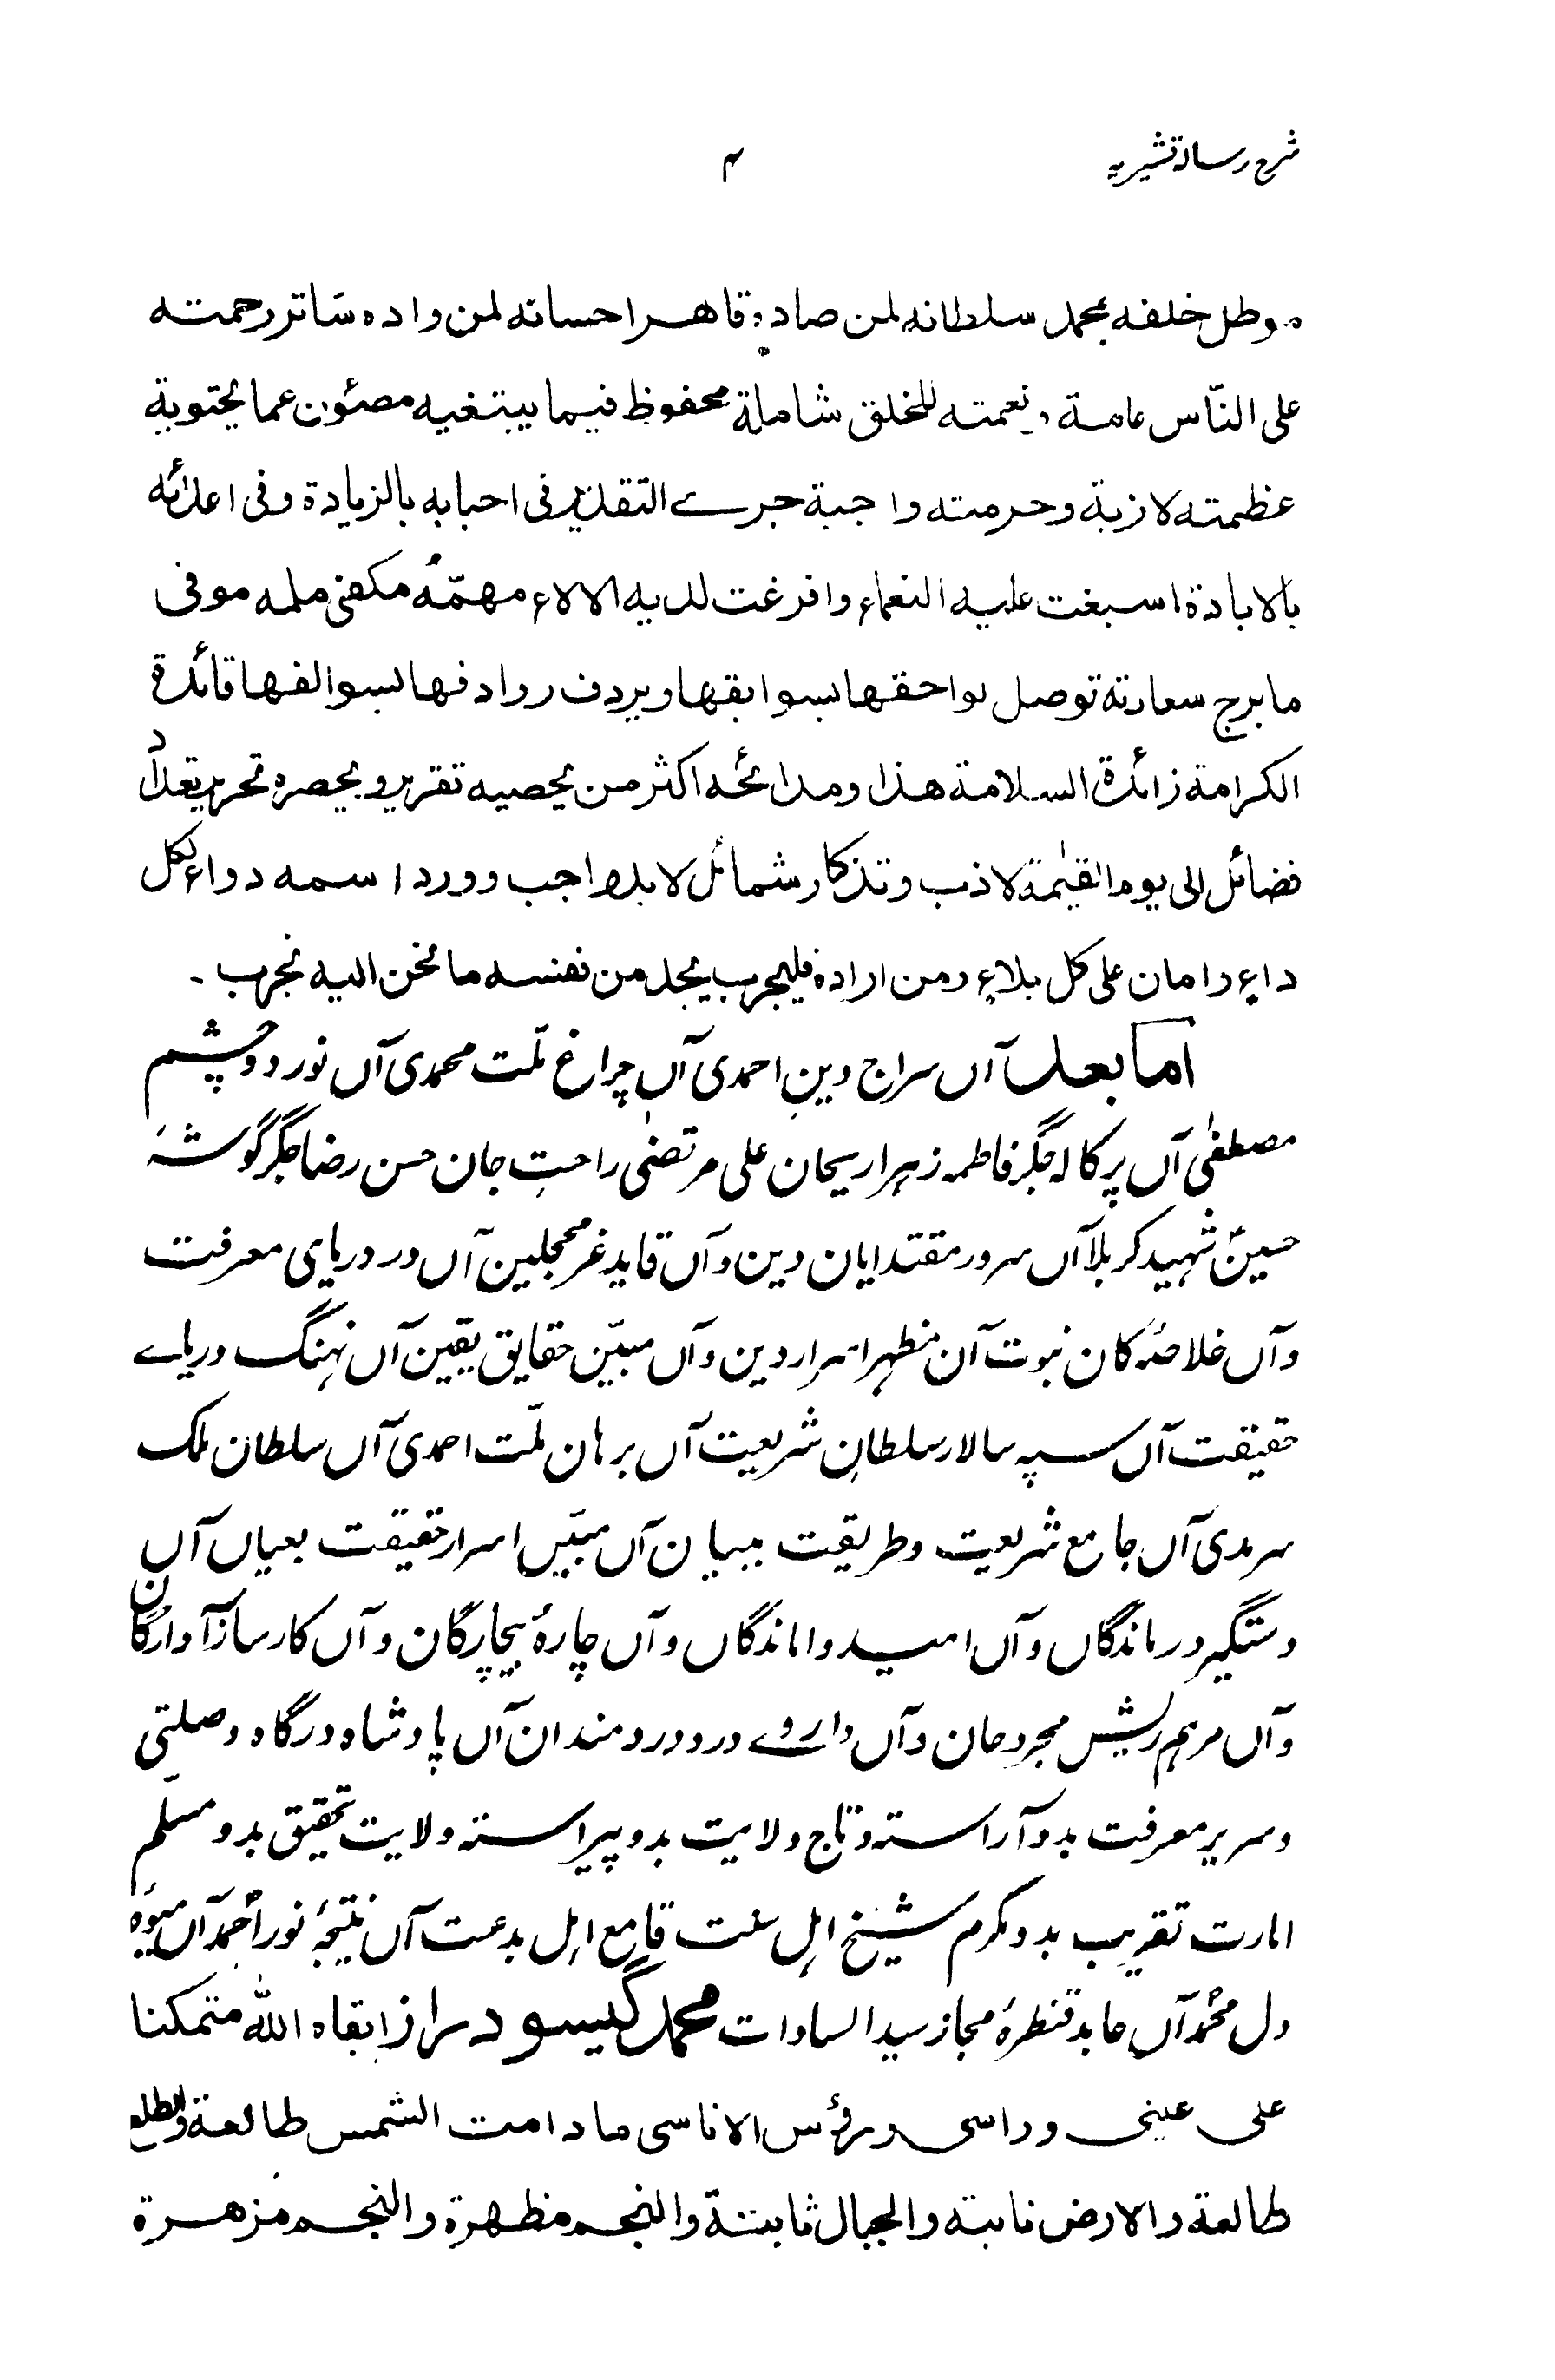 شرح رسالہ قشیریہ
۴
موطل خلفه بمحمد سلطانه لمن صاده قاهر احسانه لمن واده ساتر رحمته
علی النّاس عامة و نعمته للخلق شاملة محفوظ فیما یبتغیه مصئون عما یحتویه
عظمته لازبة وحرمته واجبة جرے التقدیر فی احبابه بالزیادة وفی اعدائه
بالابادة اسبغت علیه النعماء وافرغت لدیه الالاء مهمّهُ مکفی ملمه موفی
ما برح سعادته توصل لواحقها بسوابقها ویردف روادفها بسوالفها قائدة
الکرامة زائدة السلامة هذا ومدائحه اکثر من یحصیه تقریر ویحصره تحریر تعداد
فضائل الی یوم القیٰمة لاذب وتذکار شمائل لابد واجب وورد اسمه دواء لکل
داء وامان علی کل بلاء ومن اراده فلیجرب یجد من نفسه ما نحن الیه نجرب۔
اما بعد آں سراج دینِ احمدی آں چراغ ملّت محمدی آں نور دو چشم
مصطفیٰ آں پرکالہ جگر فاطمہ زہرا ریحان علی مرتضیٰ راحتِ جان حسن رضا جگر گوشۂ
حسینؑ شہید کربلا آں سرور مقتدایان دین و آں قاید غر محجلین آں در دریای معرفت
و آں خلاصۂ کان نبوت آن مظہر اسرار دین و آں مبیّن حقایق یقین آں نہنگ دریاے
حقیقت آں سپہ سالار سلطانِ شریعت آں برہان ملّت احمدی آں سلطان ملک
سرمدی آں جامع شریعت وطریقت ببیان آں مبیّں اسرار حقیقت بعیاں آں
دستگیر درماندگاں و آں امید واماندگاں و آں چارۂ بیچارگان و آں کارساز آوارگان
و آں مرہم ریش مجروحان و آں داروے درد دردمندان آں پادشاہ درگاہ وصلتی
وسریر معرفت بدو آراستہ وتاج ولایت بدو پیراستہ ولایت تحقیق بدو مسلّم
امارت تقریب بدو مکرم شیخ اہل سنت قامع اہل بدعت آں نتیجۂ نور احمدؐ آں میوۂ
دل محمدؐ آں عابد قنطرۂ مجاز سید السادات محمد گیسو دراز ابقاہ اللہ متمکنا
علی عینی وراسی ورؤس الاناسی مادامت الشمس طالعة والطلع
طالعة والارض نابتة والجبال ثابتة والنجم مظهرة والنجم مزهرة